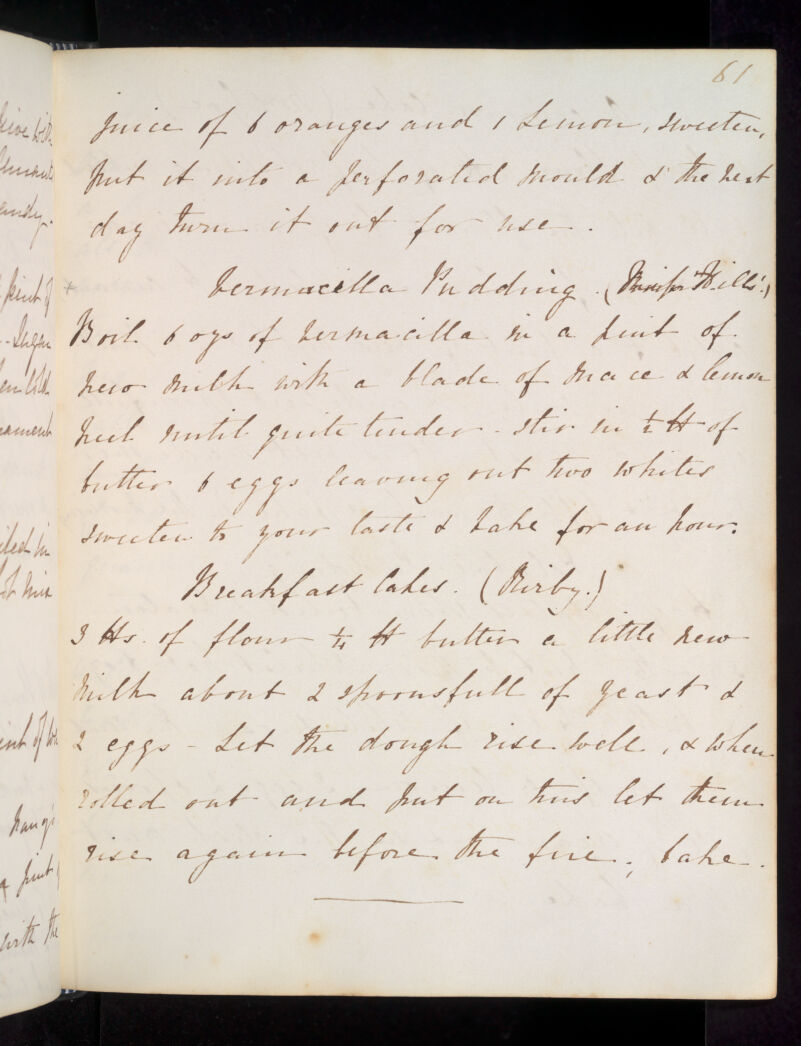 61
juice of 6 oranges and 1 Lemon, sweeten,
put it into a perforated mould & the next
day turn it out for use.
+ Vermacella Pudding. (Hills')
Boil 6 ozs of vermacilla in a pint of
new milk with a blade of mace & lemon
peel until quite tender - stir in ½ lb of
butter 6 eggs leaving out two whites
sweeten to your taste & bake for an hour.
Breakfast Cakes. (Kirby.)
3 lbs. of flour ¼ lb butter a little new
milk about 2 spoonsfull of yeast &
2 eggs - Let the dough rise well, & when
rolled out and put on tins let them
rise again before the fire, bake.